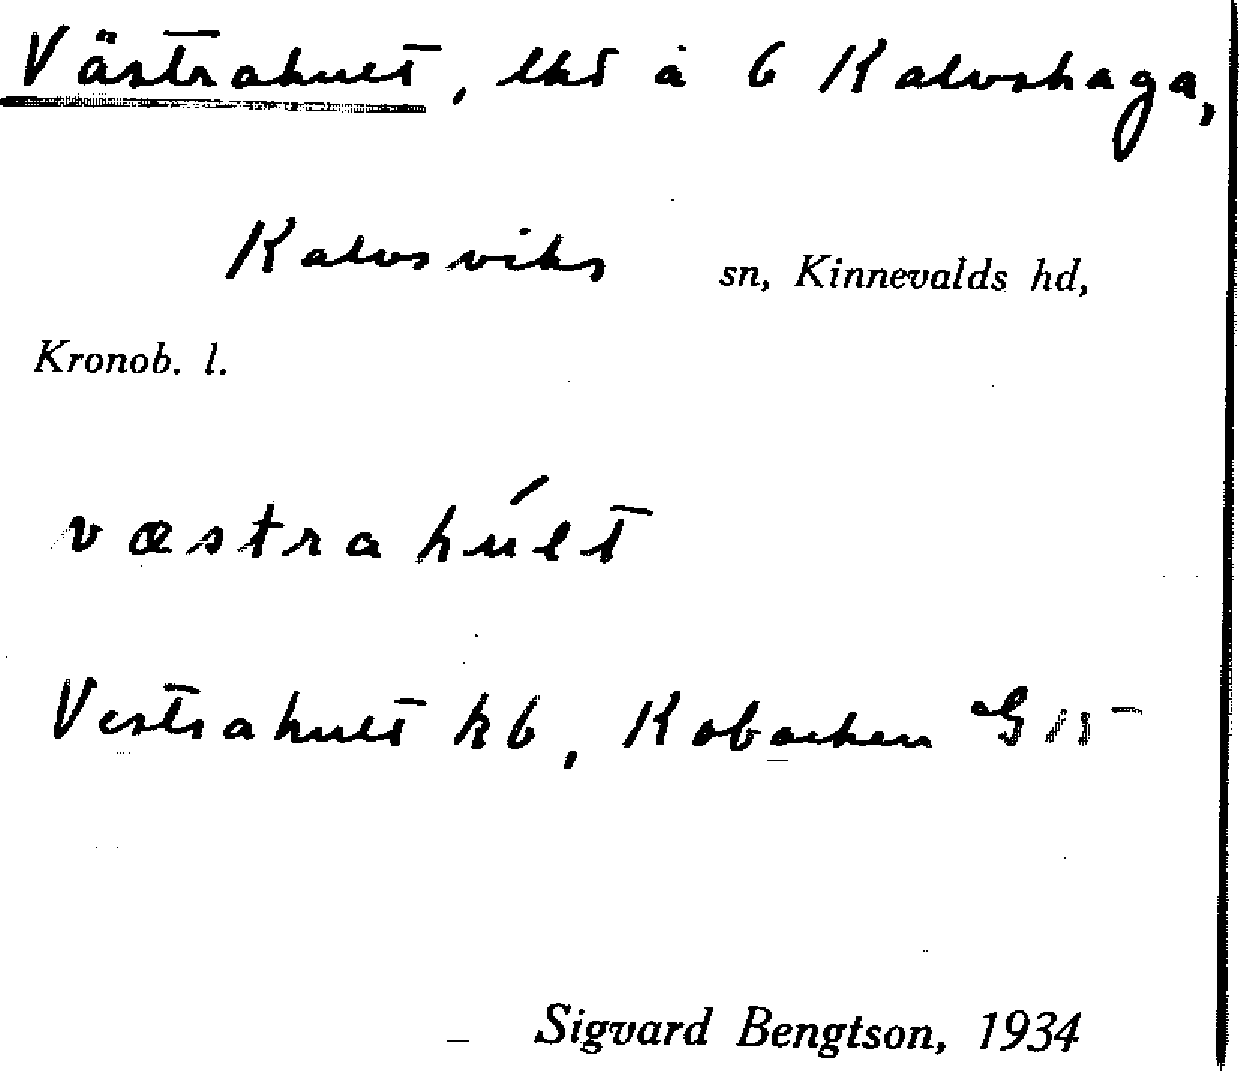 Västrahult, lht å 6 Kalvshaga,
Kalvsviks sn, Kinnevalds hd,
Kronob. l.
væstrahúlt
Vestrahult kb,
Sigvard Bengtson, 1934